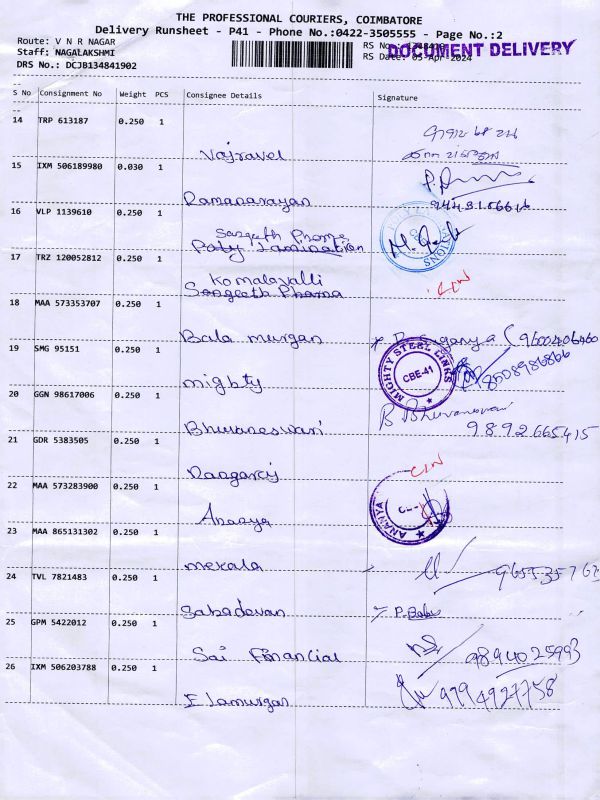 THE PROFESSIONAL COURIERS, COIMBATORE
Delivery Runsheet - P41 - Phone No.:0422-3505555 - Page No.:2
Route: V N R NAGAR
RS No
DOCUMENT DELIVERY
Staff: NAGALAKSHMI
RS Date: 05-Apr-2024
DRS No.: DCJB134841902
S No Consignment No Weight PCS Consignee Details Signature
14 TRP 613187 0.250 1
Vajravel
15 IXM 506189980 0.030 1
Ramanarayan
16 VLP 1139610 0.250 1
Sangeeth Phome
Poly Lamination
17 TRZ 120052812 0.250 1
Komalavalli
Sangeeth Phama
18 MAA 573353707 0.250 1
Bala murgan
9600406460
19 SMG 95151 0.250 1
mighty
MIGHTY STEEL LINKS
CBE-41
8508986866
20 GGN 98617006 0.250 1
Bhuvaneswari
B Bhuvaneswari
9892665415
21 GDR 5383505 0.250 1
22 MAA 573283900 0.250 1
Ananya
ANANYA
23 MAA 865131302 0.250 1
mekala
24 TVL 7821483 0.250 1
Sahadevan
P. Babu
25 GPM 5422012 0.250 1
Sai Financial
9894025993
26 IXM 506203788 0.250 1
Elamurgan
9794927758